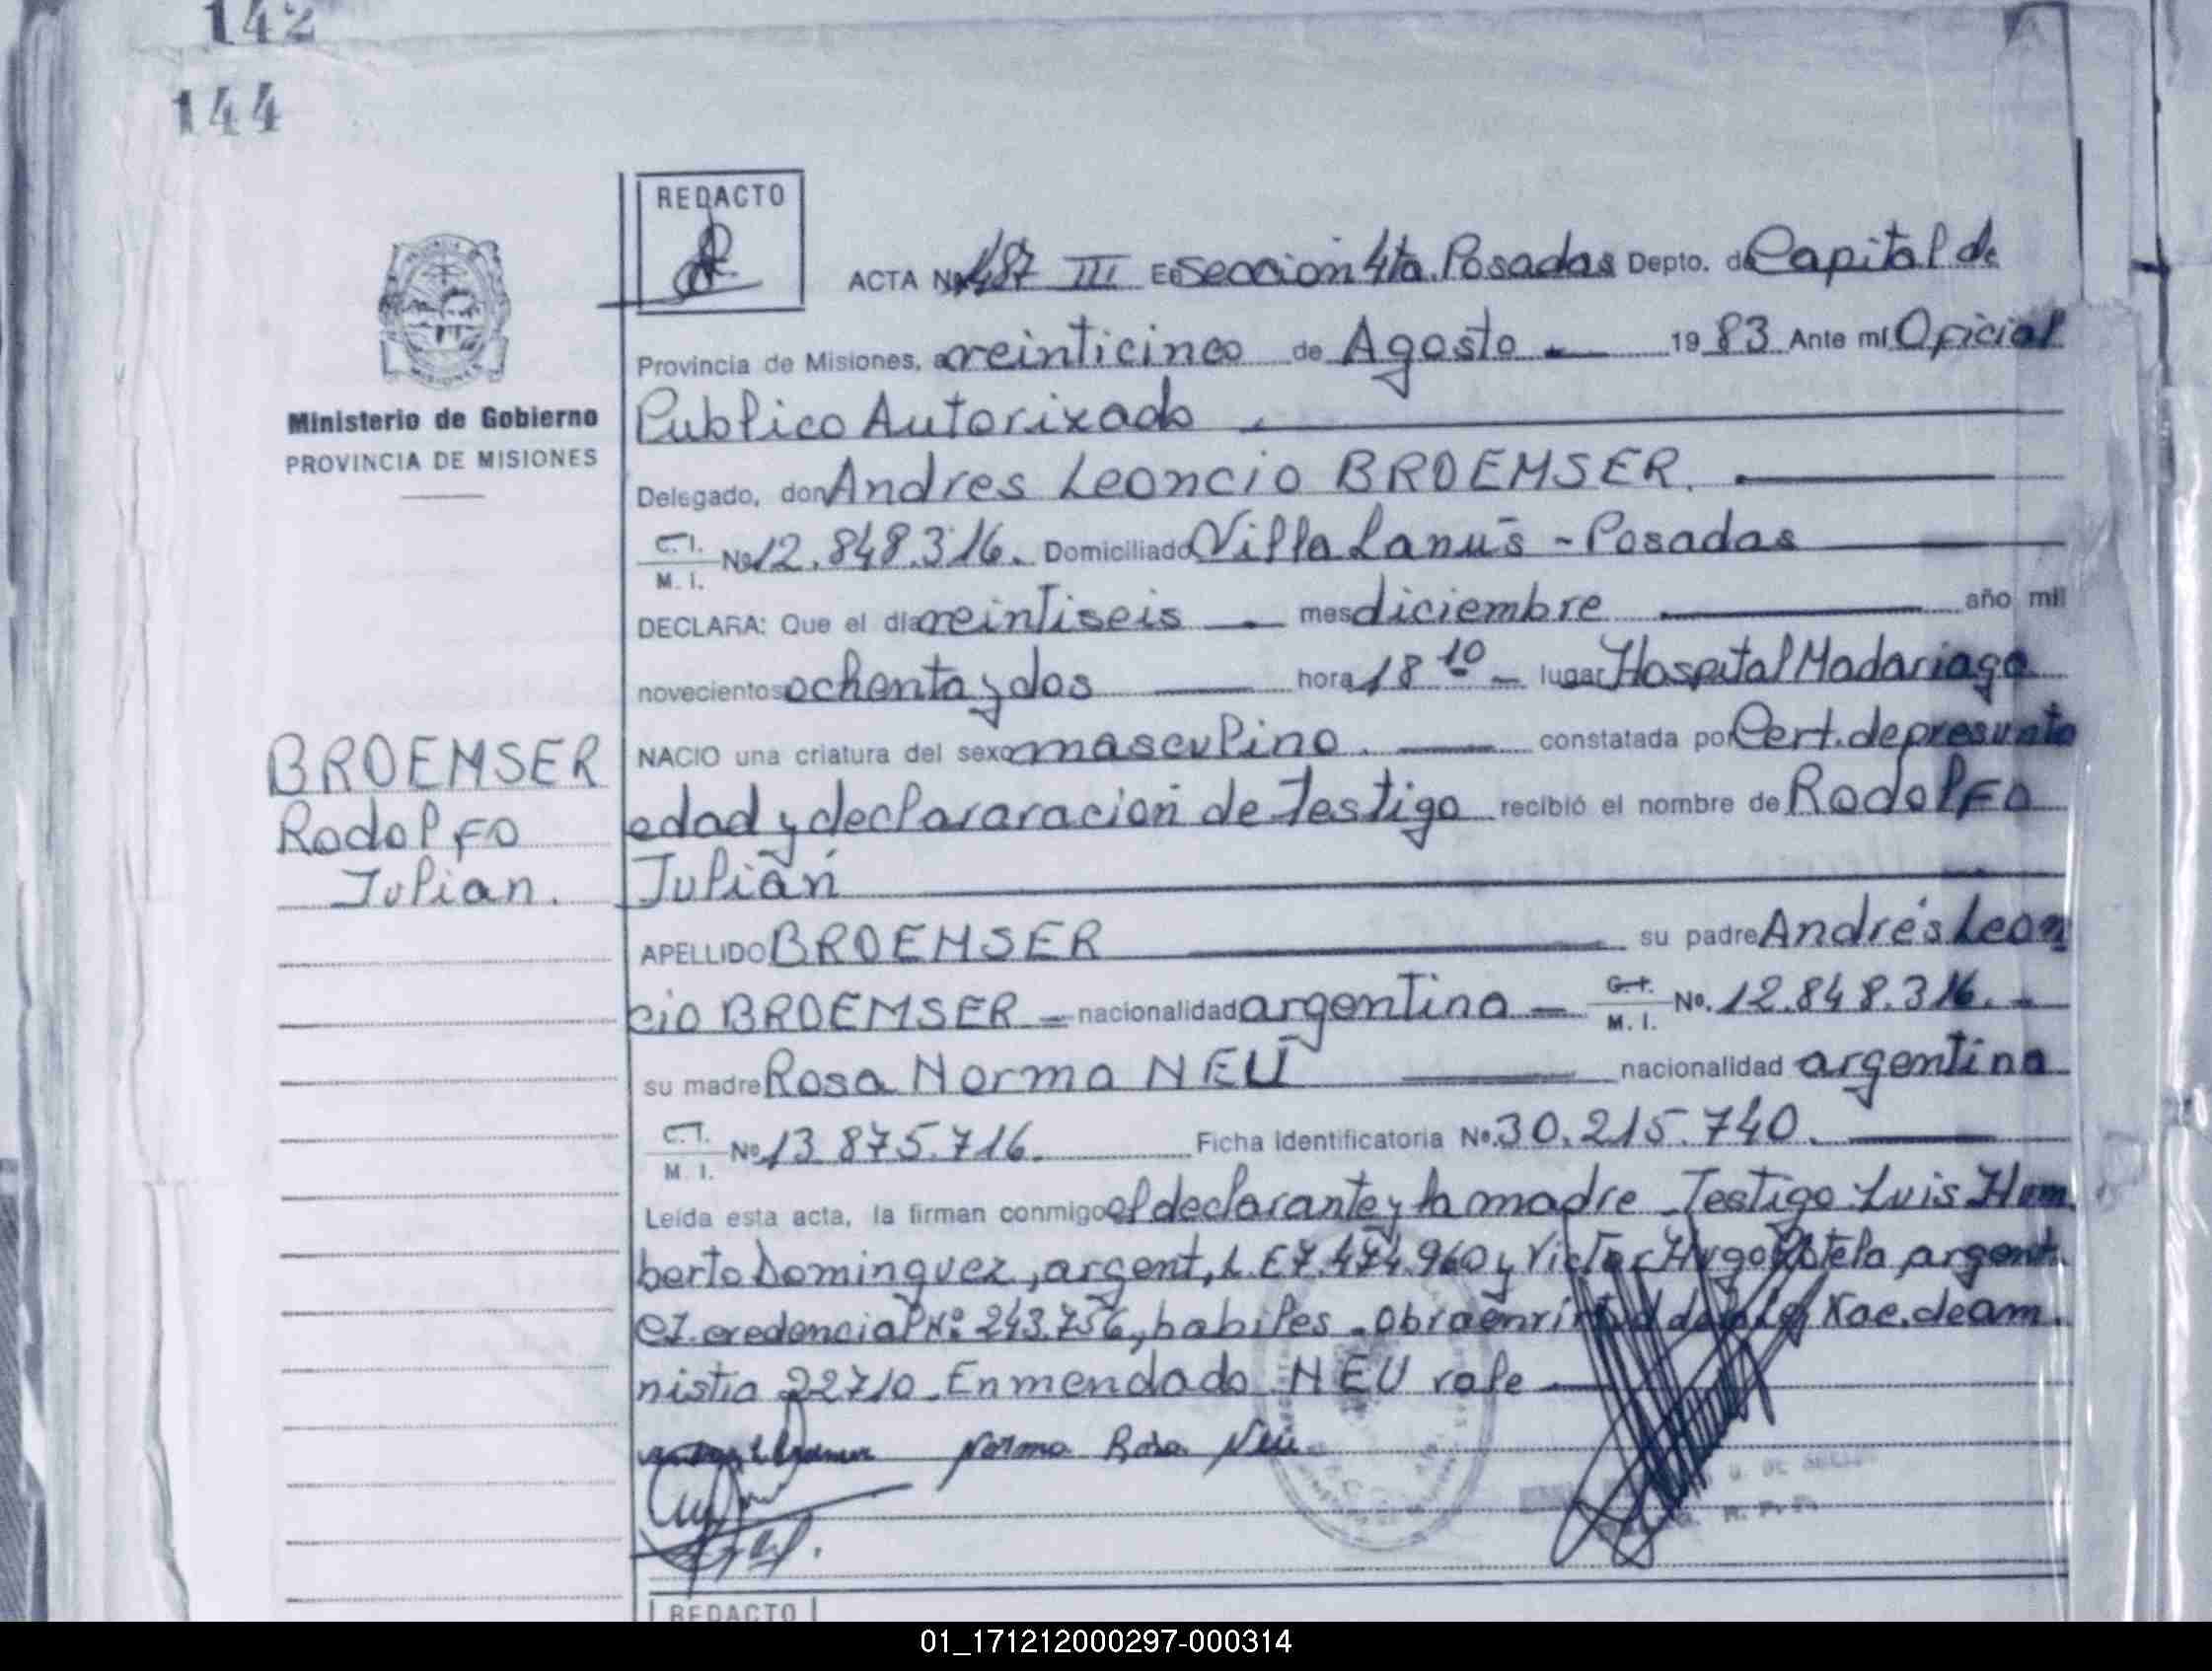 142
144
REDACTO
ACTA Nº 487 III En Sección 4ta. Posadas Depto. de Capital de
Provincia de Misiones, a veinticinco de Agosto 1983 Ante mí Oficial
Publico Autorizado
Ministerio de Gobierno
PROVINCIA DE MISIONES
Delegado, don Andres Leoncio BROEMSER.
C.I.
M. I. Nº 12.848.316. Domiciliado Villa Lanús - Posadas
DECLARA: Que el día veintiseis mes diciembre año mil
novecientos ochenta y dos hora 18 10 lugar Hospital Madariaga
NACIO una criatura del sexo masculino. constatada por Cert. de presunta
edad y declararación de Testigo recibió el nombre de Rodolfo
Julián
BROEMSER
Rodolfo
Julian.
APELLIDO BROEMSER su padre Andrés Leon
cio BROEMSER nacionalidad argentina C.I.
M. I. Nº. 12.848.316.
su madre Rosa Norma NEU nacionalidad argentina
C.I.
M. I. Nº 13.875.716. Ficha Identificatoria Nº. 30.215.740.
Leída esta acta, la firman conmigo el declarante y la madre Testigo Luis Hum
berto Dominguez, argent, L.E 7.474.960 y Victor Hugo argent.
credencial Nº 243.756, habiles. Obra en Ley Nac. de am
nistia 22710. Enmendado NEU vale
Norma Rosa Neu
REDACTO
01_171212000297-000314